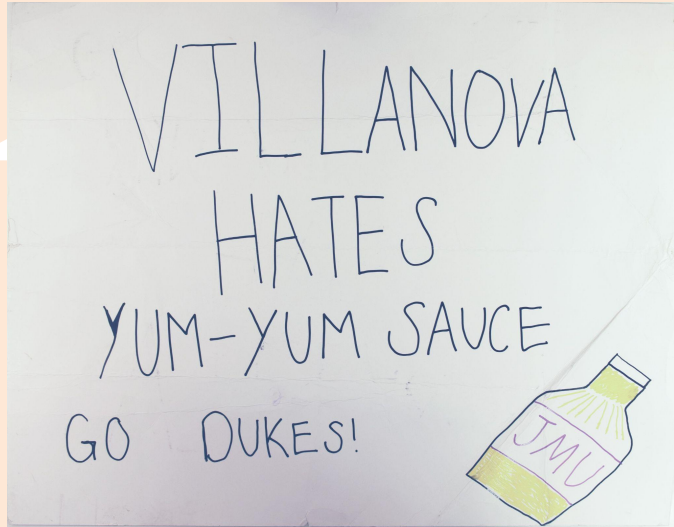 VILLANOVA
HATES
YUM-YUM SAUCE
GO DUKES!
JMU